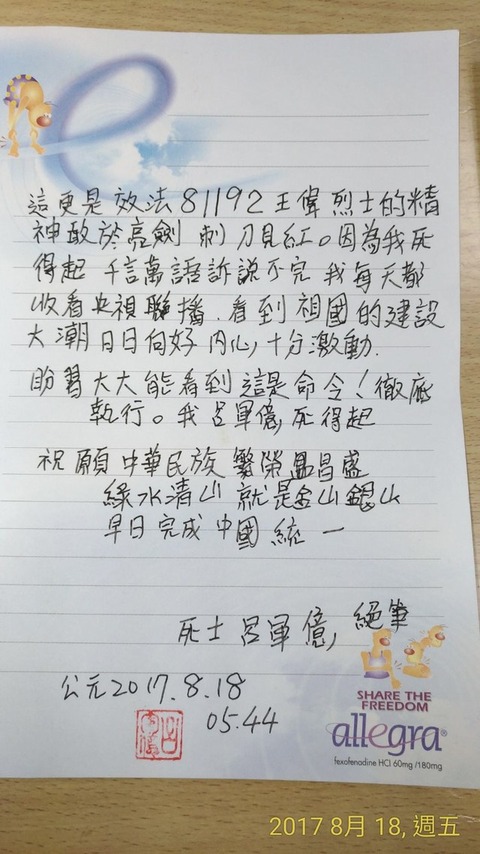 這更是效法81192王偉烈士的精
神敢於亮劍 刺刀見紅。因為我死
得起 千言萬語訴說不完 我每天都
收看央視聯播. 看到祖國的建設
大潮日日向好 內心十分激動.
盼習大大能看到這是命令！徹底
執行。我呂軍億,死得起
祝願中華民族繁榮昌盛
綠水清山 就是金山銀山
早日完成中國統一
死士呂軍億, 絕筆
公元2017.8.18
05.44
SHARE THE
FREEDOM
allegra®
fexofenadine HCl 60mg /180mg
2017 8月 18, 週五